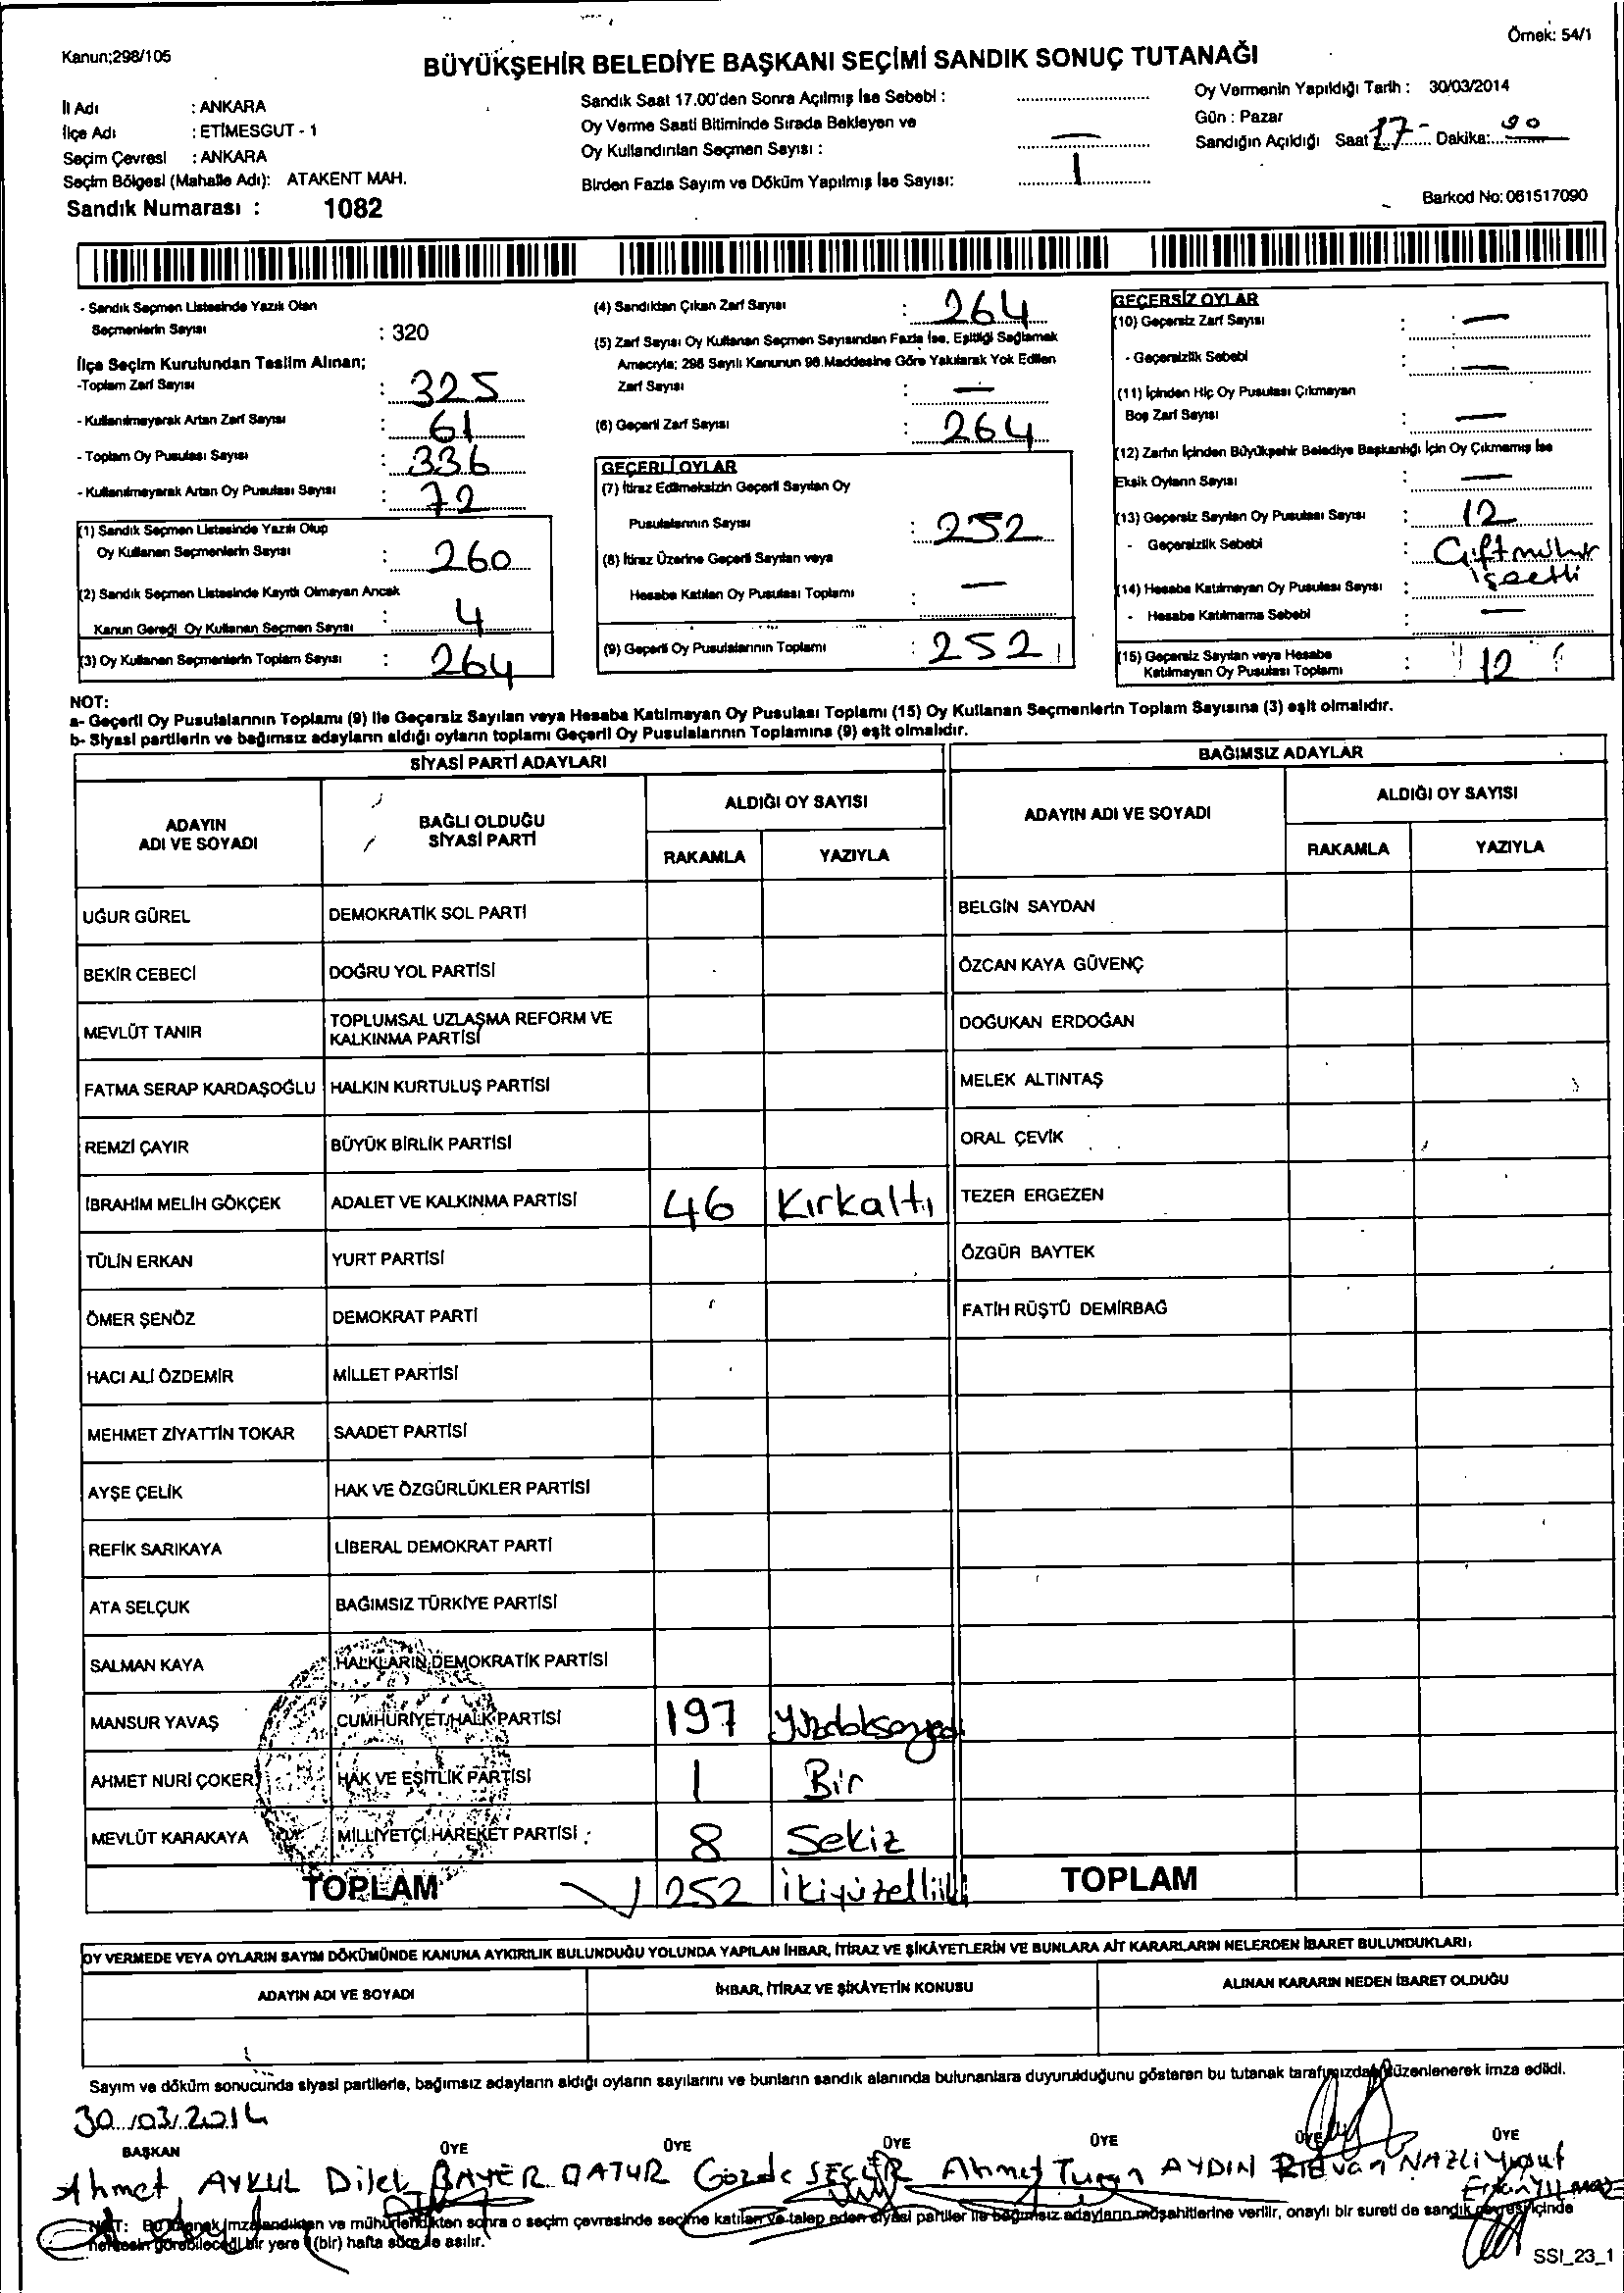 Kanun;298/105
Örnek: 54/1
BÜYÜKŞEHİR BELEDİYE BAŞKANI SEÇİMİ SANDIK SONUÇ TUTANAĞI
İl Adı : ANKARA
İlçe Adı : ETİMESGUT - 1
Seçim Çevresi : ANKARA
Seçim Bölgesi (Mahalle Adı): ATAKENT MAH.
Sandık Numarası : 1082
Sandık Saat 17.00'den Sonra Açılmış İse Sebebi :
Oy Verme Saati Bitiminde Sırada Bekleyen ve
Oy Kullandırılan Seçmen Sayısı : —
Birden Fazla Sayım ve Döküm Yapılmış İse Sayısı: 1
Oy Vermenin Yapıldığı Tarih : 30/03/2014
Gün : Pazar
Sandığın Açıldığı Saat 17 - Dakika:
Barkod No: 061517090
- Sandık Seçmen Listesinde Yazılı Olan
Seçmenlerin Sayısı : 320
İlçe Seçim Kurulundan Teslim Alınan;
-Toplam Zarf Sayısı : 325
- Kullanılmayarak Artan Zarf Sayısı : 61
- Toplam Oy Pusulası Sayısı : 336
- Kullanılmayarak Artan Oy Pusulası Sayısı : 72
(1) Sandık Seçmen Listesinde Yazılı Olup
Oy Kullanan Seçmenlerin Sayısı : 260
(2) Sandık Seçmen Listesinde Kayıtlı Olmayan Ancak
Kanun Gereği Oy Kullanan Seçmen Sayısı : 4
(3) Oy Kullanan Seçmenlerin Toplam Sayısı : 264
(4) Sandıktan Çıkan Zarf Sayısı : 264
(5) Zarf Sayısı Oy Kullanan Seçmen Sayısından Fazla İse, Eşitliği Sağlamak
Amacıyla; 298 Sayılı Kanunun 98.Maddesine Göre Yakılarak Yok Edilen
Zarf Sayısı : —
(6) Geçerli Zarf Sayısı : 264
GEÇERLİ OYLAR
(7) İtiraz Edilmeksizin Geçerli Sayılan Oy
Pusulalarının Sayısı : 252
(8) İtiraz Üzerine Geçerli Sayılan veya
Hesaba Katılan Oy Pusulası Toplamı : —
(9) Geçerli Oy Pusulalarının Toplamı : 252
GEÇERSİZ OYLAR
(10) Geçersiz Zarf Sayısı : —
- Geçersizlik Sebebi : —
(11) İçinden Hiç Oy Pusulası Çıkmayan
Boş Zarf Sayısı : —
(12) Zarfın İçinden Büyükşehir Belediye Başkanlığı İçin Oy Çıkmamış İse
Eksik Oyların Sayısı : —
(13) Geçersiz Sayılan Oy Pusulası Sayısı : 12
- Geçersizlik Sebebi : Çift mühür
işaetli
(14) Hesaba Katılmayan Oy Pusulası Sayısı :
- Hesaba Katılmama Sebebi : —
(15) Geçersiz Sayılan veya Hesaba
Katılmayan Oy Pusulası Toplamı : 12
NOT:
a- Geçerli Oy Pusulalarının Toplamı (9) ile Geçersiz Sayılan veya Hesaba Katılmayan Oy Pusulası Toplamı (15) Oy Kullanan Seçmenlerin Toplam Sayısına (3) eşit olmalıdır.
b- Siyasi partilerin ve bağımsız adayların aldığı oyların toplamı Geçerli Oy Pusulalarının Toplamına (9) eşit olmalıdır.
SİYASİ PARTİ ADAYLARI
ADAYIN ADI VE SOYADI
BAĞLI OLDUĞU SİYASİ PARTİ
ALDIĞI OY SAYISI
RAKAMLA YAZIYLA
UĞUR GÜREL DEMOKRATİK SOL PARTİ
BEKİR CEBECİ DOĞRU YOL PARTİSİ
MEVLÜT TANIR TOPLUMSAL UZLAŞMA REFORM VE
KALKINMA PARTİSİ
FATMA SERAP KARDAŞOĞLU HALKIN KURTULUŞ PARTİSİ
REMZİ ÇAYIR BÜYÜK BİRLİK PARTİSİ
İBRAHİM MELİH GÖKÇEK ADALET VE KALKINMA PARTİSİ 46 Kırkaltı
TÜLİN ERKAN YURT PARTİSİ
ÖMER ŞENÖZ DEMOKRAT PARTİ
HACI ALİ ÖZDEMİR MİLLET PARTİSİ
MEHMET ZİYATTİN TOKAR SAADET PARTİSİ
AYŞE ÇELİK HAK VE ÖZGÜRLÜKLER PARTİSİ
REFİK SARIKAYA LİBERAL DEMOKRAT PARTİ
ATA SELÇUK BAĞIMSIZ TÜRKİYE PARTİSİ
SALMAN KAYA HALKLARIN DEMOKRATİK PARTİSİ
MANSUR YAVAŞ CUMHURİYET HALK PARTİSİ 197 Yüzdoksanyedi
AHMET NURİ ÇOKER HAK VE EŞİTLİK PARTİSİ 1 Bir
MEVLÜT KARAKAYA MİLLİYETÇİ HAREKET PARTİSİ 8 Sekiz
TOPLAM 252 İkiyüzelliiki
BAĞIMSIZ ADAYLAR
ADAYIN ADI VE SOYADI
ALDIĞI OY SAYISI
RAKAMLA YAZIYLA
BELGİN SAYDAN
ÖZCAN KAYA GÜVENÇ
DOĞUKAN ERDOĞAN
MELEK ALTINTAŞ
ORAL ÇEVİK
TEZER ERGEZEN
ÖZGÜR BAYTEK
FATİH RÜŞTÜ DEMİRBAĞ
TOPLAM
OY VERMEDE VEYA OYLARIN SAYIM DÖKÜMÜNDE KANUNA AYKIRILIK BULUNDUĞU YOLUNDA YAPILAN İHBAR, İTİRAZ VE ŞİKÂYETLERİN VE BUNLARA AİT KARARLARIN NELERDEN İBARET BULUNDUKLARI:
ADAYIN ADI VE SOYADI
İHBAR, İTİRAZ VE ŞİKÂYETİN KONUSU
ALINAN KARARIN NEDEN İBARET OLDUĞU
Sayım ve döküm sonucunda siyasi partilerle, bağımsız adayların aldığı oyların sayılarını ve bunların sandık alanında bulunanlara duyurulduğunu gösteren bu tutanak tarafımızdan düzenlenerek imza edildi.
30/03/2014
BAŞKAN ÜYE ÜYE ÜYE ÜYE ÜYE ÜYE
Ahmet AYKUL Dilek BAYER Gözde SEÇER Ahmet Turan AYDIN Rıdvan NAZLI Yusuf
Erkan YILMAZ
NOT: Bu tutanak imzalandıktan ve mühürlendikten sonra o seçim çevresinde seçime katılan ve talep eden siyasi partiler ile bağımsız adayların müşahitlerine verilir, onaylı bir sureti de sandık çevresi içinde
herkesin görebileceği bir yere 1 (bir) hafta süre ile asılır.
SSI_23_1